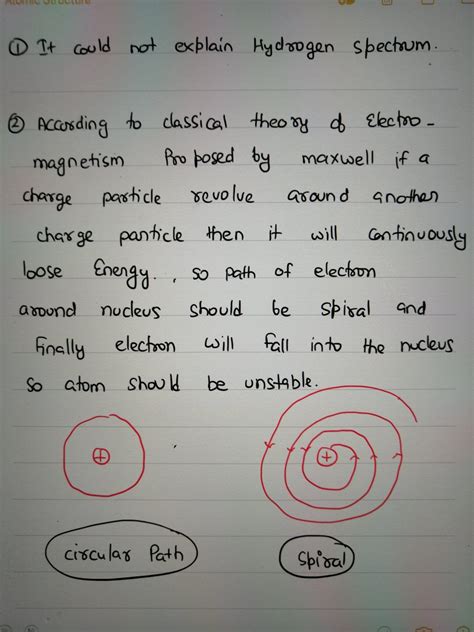 Atomic Structure
① It could not explain Hydrogen spectrum.
② According to classical theory of Electro-
magnetism Proposed by maxwell if a
charge particle revolve around another
charge particle then it will continuously
loose Energy., so path of electron
around nucleus should be spiral and
finally electron will fall into the nucleus
so atom should be unstable.
+
+
circular Path
spiral